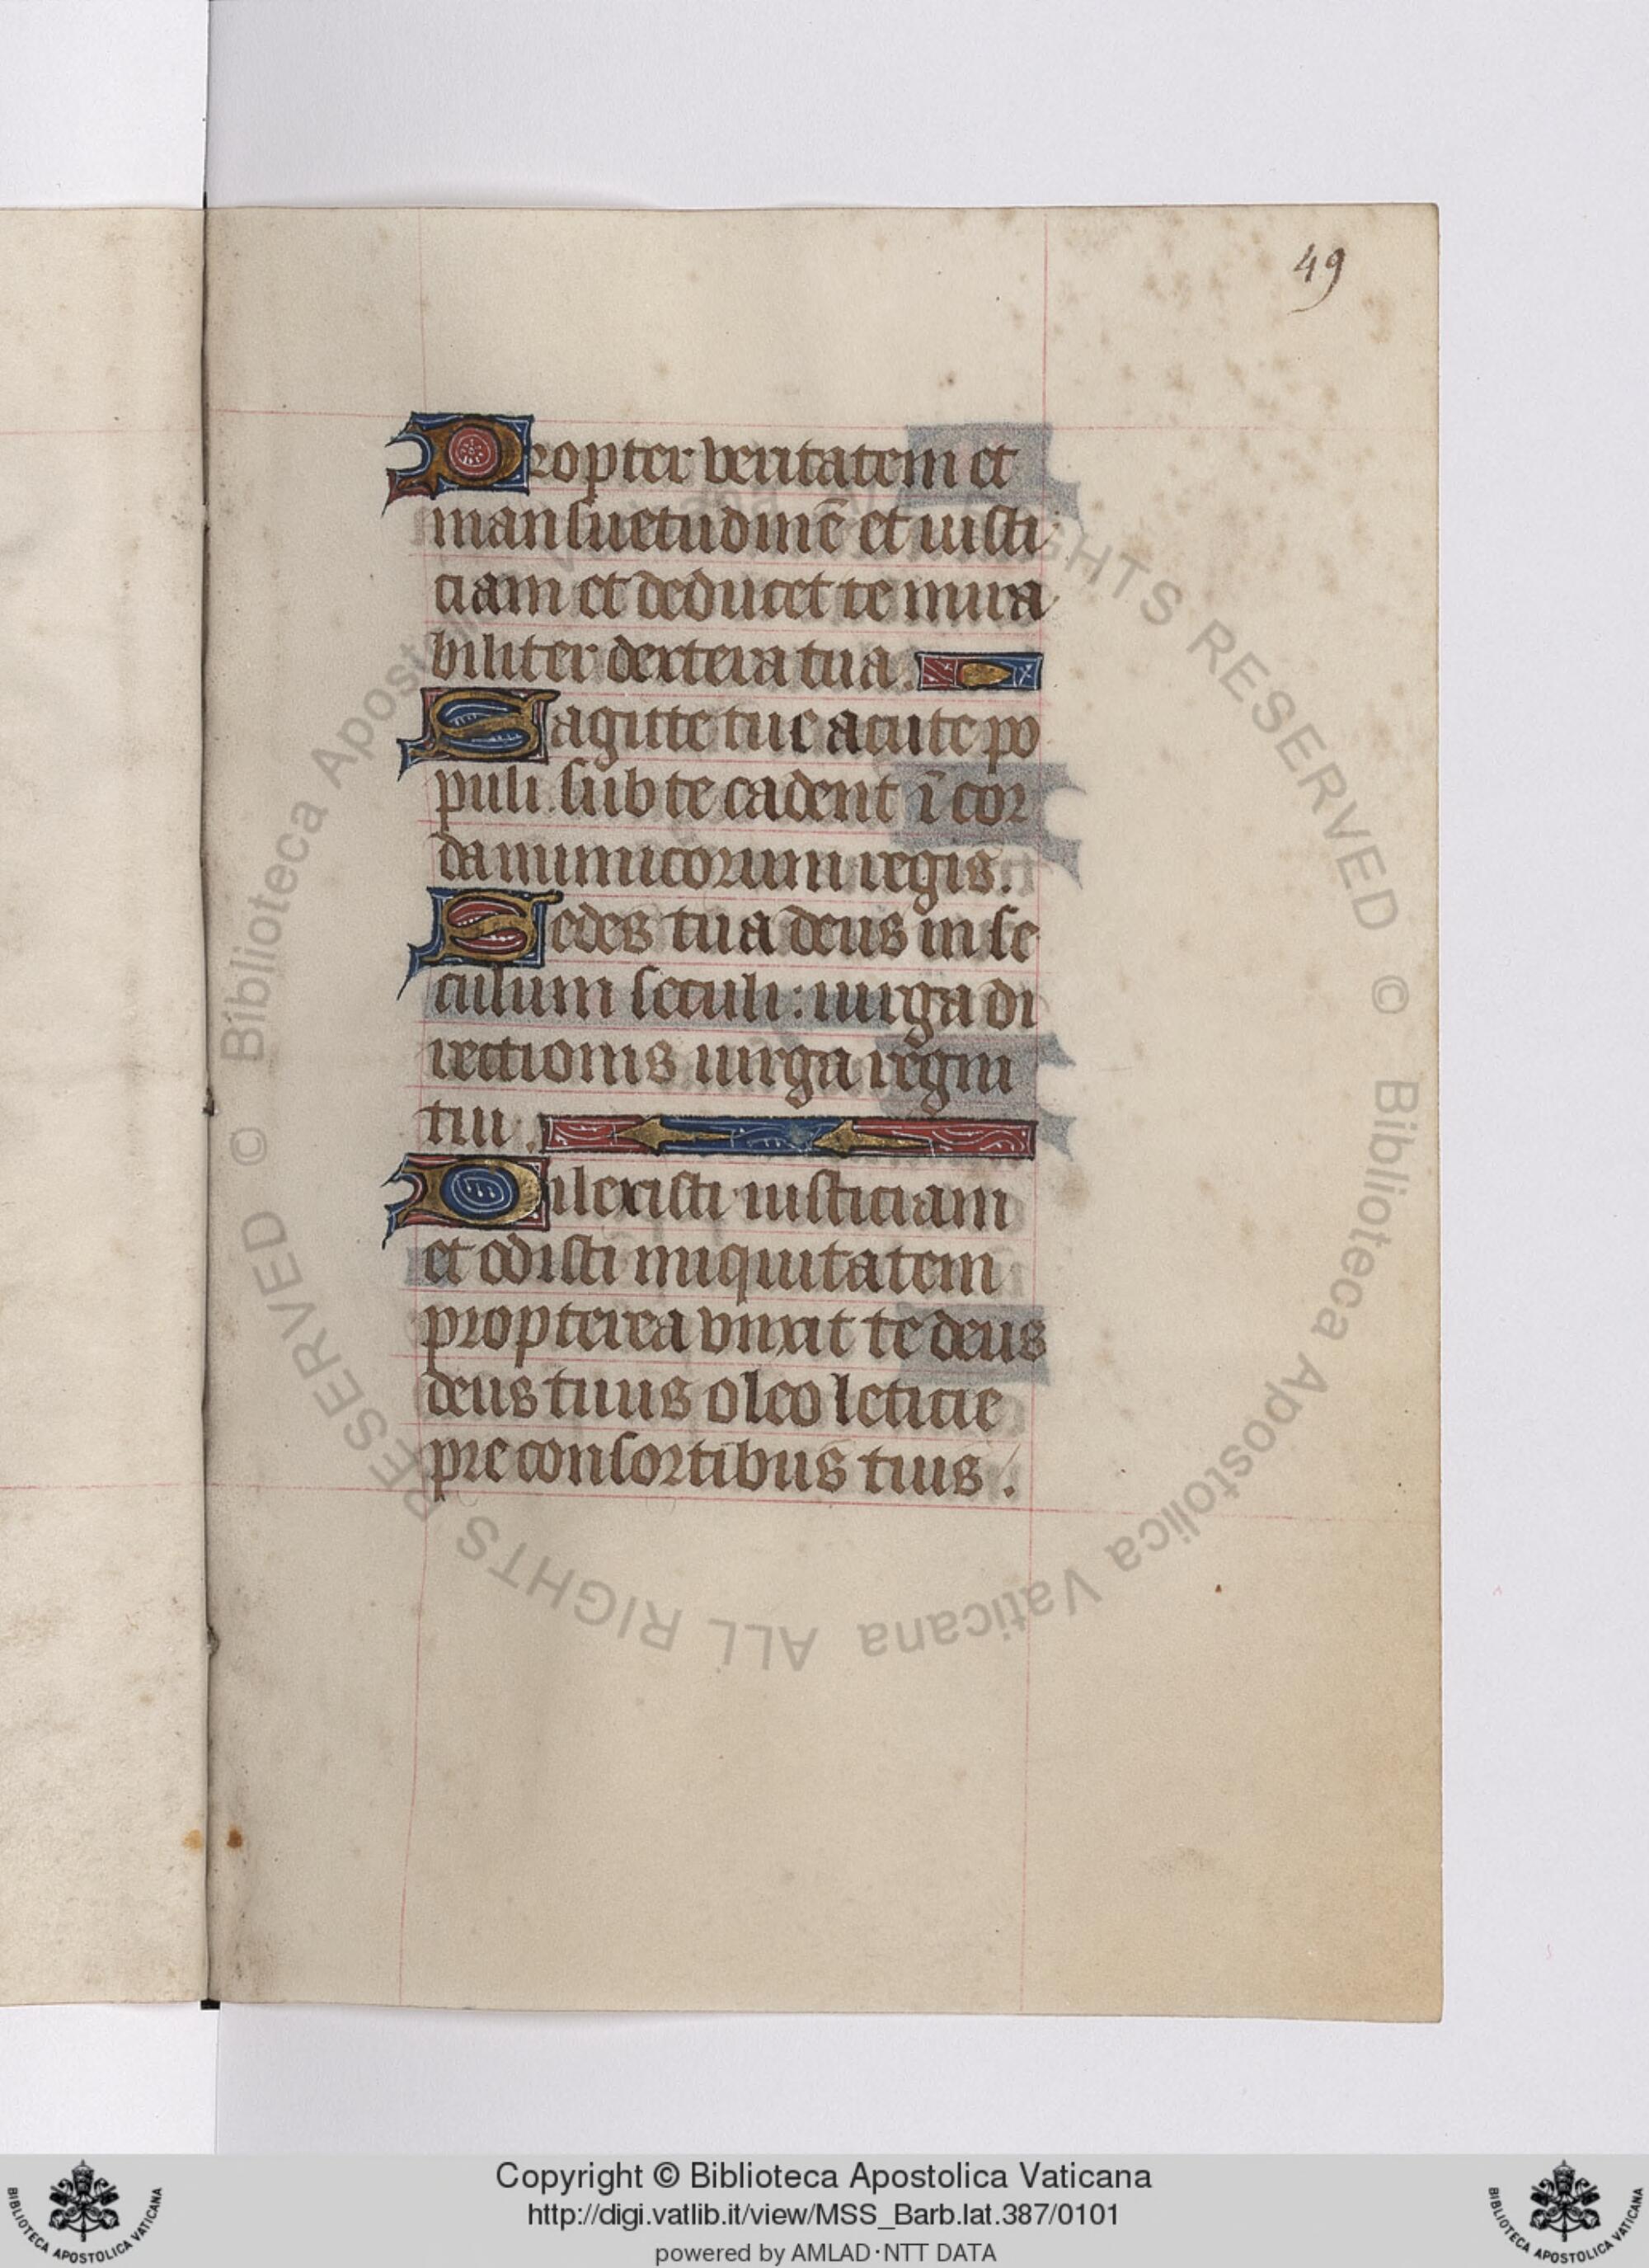 49
Propter veritatem et
mansuetudinē et iusti
ciam et deducet te mira
biliter dextera tua.
Sagitte tue acute po
puli sub te cadent ī cor
da inimicorum regis.
Sedes tua deus in se
culum seculi: uirga di
rectionis uirga regni
tui.
Dilexisti iusticiam
et odisti iniquitatem
propterea vnxit te deus
deus tuus oleo leticie
pre consortibus tuis.
© Biblioteca Apostolica Vaticana ALL RIGHTS RESERVED
© Biblioteca Apostolica Vaticana ALL RIGHTS RESERVED
Copyright © Biblioteca Apostolica Vaticana
http://digi.vatlib.it/view/MSS_Barb.lat.387/0101
powered by AMLAD·NTT DATA
BIBLIOTECA APOSTOLICA VATICANA
BIBLIOTECA APOSTOLICA VATICANA